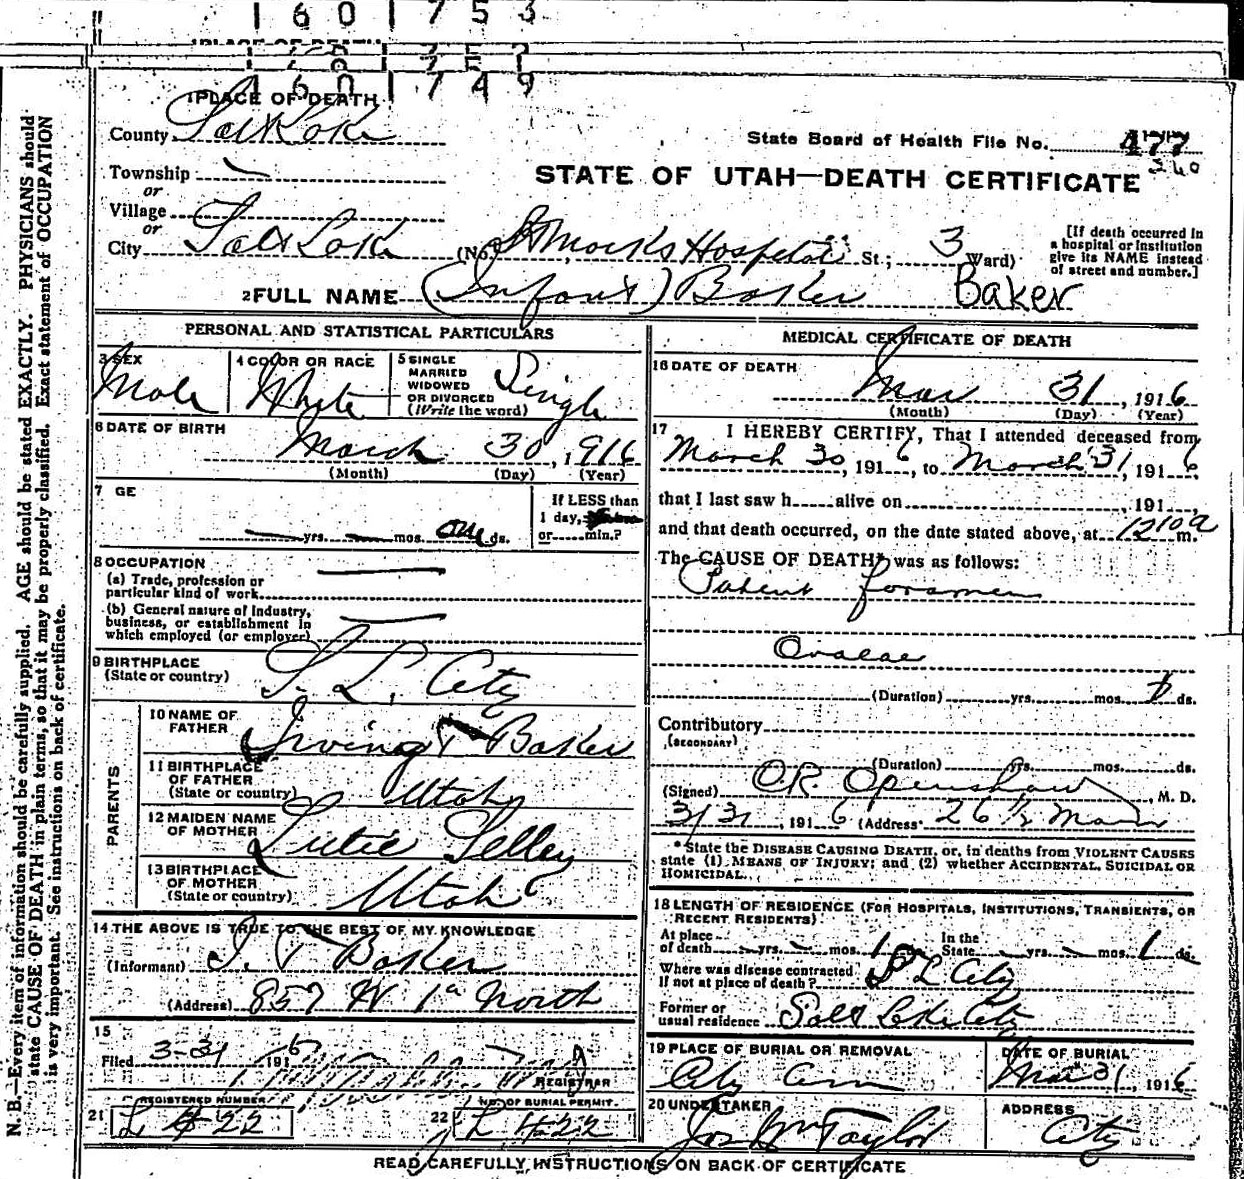 1 60 1 753
PLACE OF DEATH
1 60 1 749
1 PLACE OF DEATH
County Salt Lake
State Board of Health File No. 477
360
Township —
STATE OF UTAH—DEATH CERTIFICATE
or
Village
or
City Salt Lake (No. St Marks Hospital St.; 3 Ward)
[If death occurred in
a hospital or institution
give its NAME instead
of street and number.]
2 FULL NAME (Infant) Baker Baker
PERSONAL AND STATISTICAL PARTICULARS
3 SEX Male
4 COLOR OR RACE White
5 SINGLE
MARRIED
WIDOWED
OR DIVORCED
(Write the word) Single
6 DATE OF BIRTH
March 30, 1916
(Month) (Day) (Year)
7 GE
— yrs. — mos. one ds.
If LESS than
1 day,
or min.?
8 OCCUPATION
(a) Trade, profession or
particular kind of work —
(b) General nature of Industry,
business, or establishment in
which employed (or employer) —
9 BIRTHPLACE
(State or country) S. L. City
PARENTS
10 NAME OF
FATHER Irving T Baker
11 BIRTHPLACE
OF FATHER
(State or country) Utah
12 MAIDEN NAME
OF MOTHER Lutie Selley
13 BIRTHPLACE
OF MOTHER
(State or country) Utah
14 THE ABOVE IS TRUE TO THE BEST OF MY KNOWLEDGE
(Informant) I. T Baker
(Address) 857 W 1st North
15
Filed 3-31 1916
REGISTRAR
REGISTERED NUMBER
21 L 422
NO. OF BURIAL PERMIT.
22 L 422
MEDICAL CERTIFICATE OF DEATH
16 DATE OF DEATH
Mar 31, 1916
(Month) (Day) (Year)
17 I HEREBY CERTIFY, That I attended deceased from
March 30, 1916, to March 31, 1916,
that I last saw h alive on , 191 ,
and that death occurred, on the date stated above, at 12 10 a m.
The CAUSE OF DEATH* was as follows:
Patent foramen
Ovalae
(Duration) yrs. mos. 1 ds.
Contributory
(SECONDARY)
(Duration) yrs. mos. ds.
(Signed) O.R. Openshaw, M. D.
3/31, 1916 (Address 26 1/2 Main
* State the DISEASE CAUSING DEATH, or, in deaths from VIOLENT CAUSES
state (1) MEANS OF INJURY; and (2) whether ACCIDENTAL, SUICIDAL OR
HOMICIDAL.
18 LENGTH OF RESIDENCE (FOR HOSPITALS, INSTITUTIONS, TRANSIENTS, OR
RECENT RESIDENTS)
At place
of death — yrs. — mos. 1 ds. In the
State — yrs. — mos. 1 ds.
Where was disease contracted
If not at place of death? S L City
Former or
usual residence Salt Lake City
19 PLACE OF BURIAL OR REMOVAL
City Cem
DATE OF BURIAL
Mar 31, 1916
20 UNDERTAKER
Jos Wm Taylor
ADDRESS
City
READ CAREFULLY INSTRUCTIONS ON BACK OF CERTIFICATE
N. B.—Every item of information should be carefully supplied. AGE should be stated EXACTLY. PHYSICIANS should
state CAUSE OF DEATH in plain terms, so that it may be properly classified. Exact statement of OCCUPATION
is very important. See instructions on back of certificate.